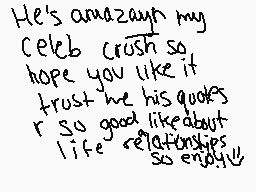 He's amazayn my
celeb crush so
hope you like it
trust me his quotes
r so good like about
life relationships
so enjoy